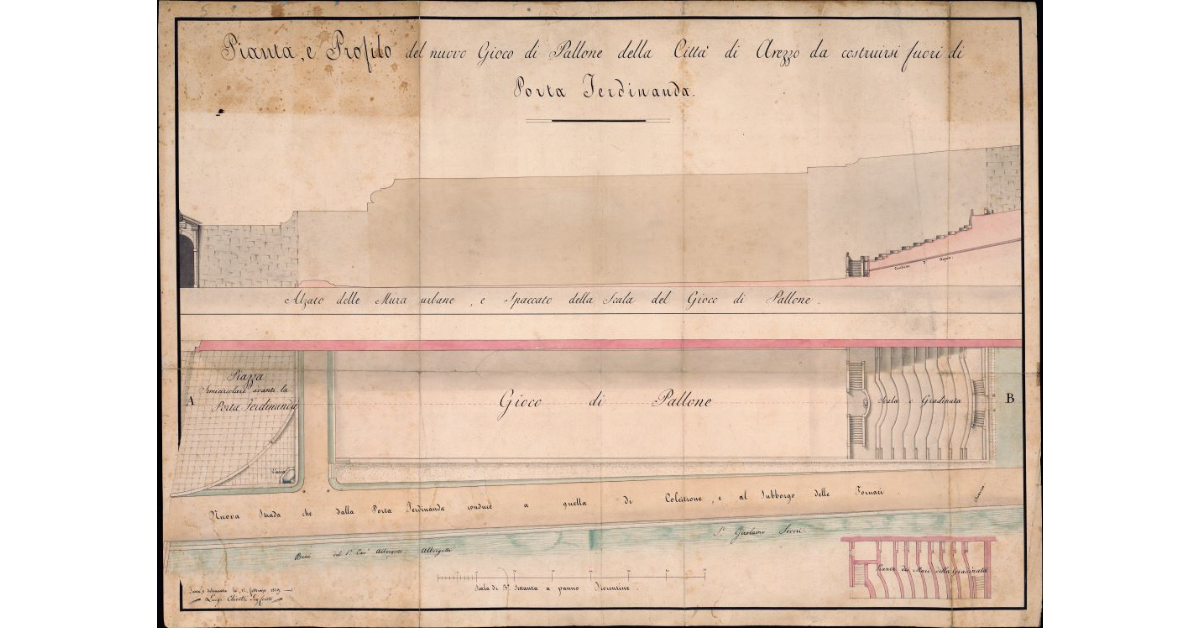 Pianta, e Profilo del nuovo Gioco di Pallone della Città di Arezzo da costruirsi fuori di
Porta Ferdinanda.
Alzato delle Mura urbane, e Spaccato della Scala del Gioco di Pallone.
Piazza
Semicircolare avanti la
Porta Ferdinanda
A
Gioco di Pallone
Scala a Gradinata
B
Nuova Strada che dalla Porta Ferdinanda conduce a quella di Colcitrone, e al Subborgo delle Fornaci
Beni del Sr. Cav. Albergotti
Sr. Girolamo
Pianta dei Muri della Gradinata
Scala di Bra. a panno Fiorentine
Luigi